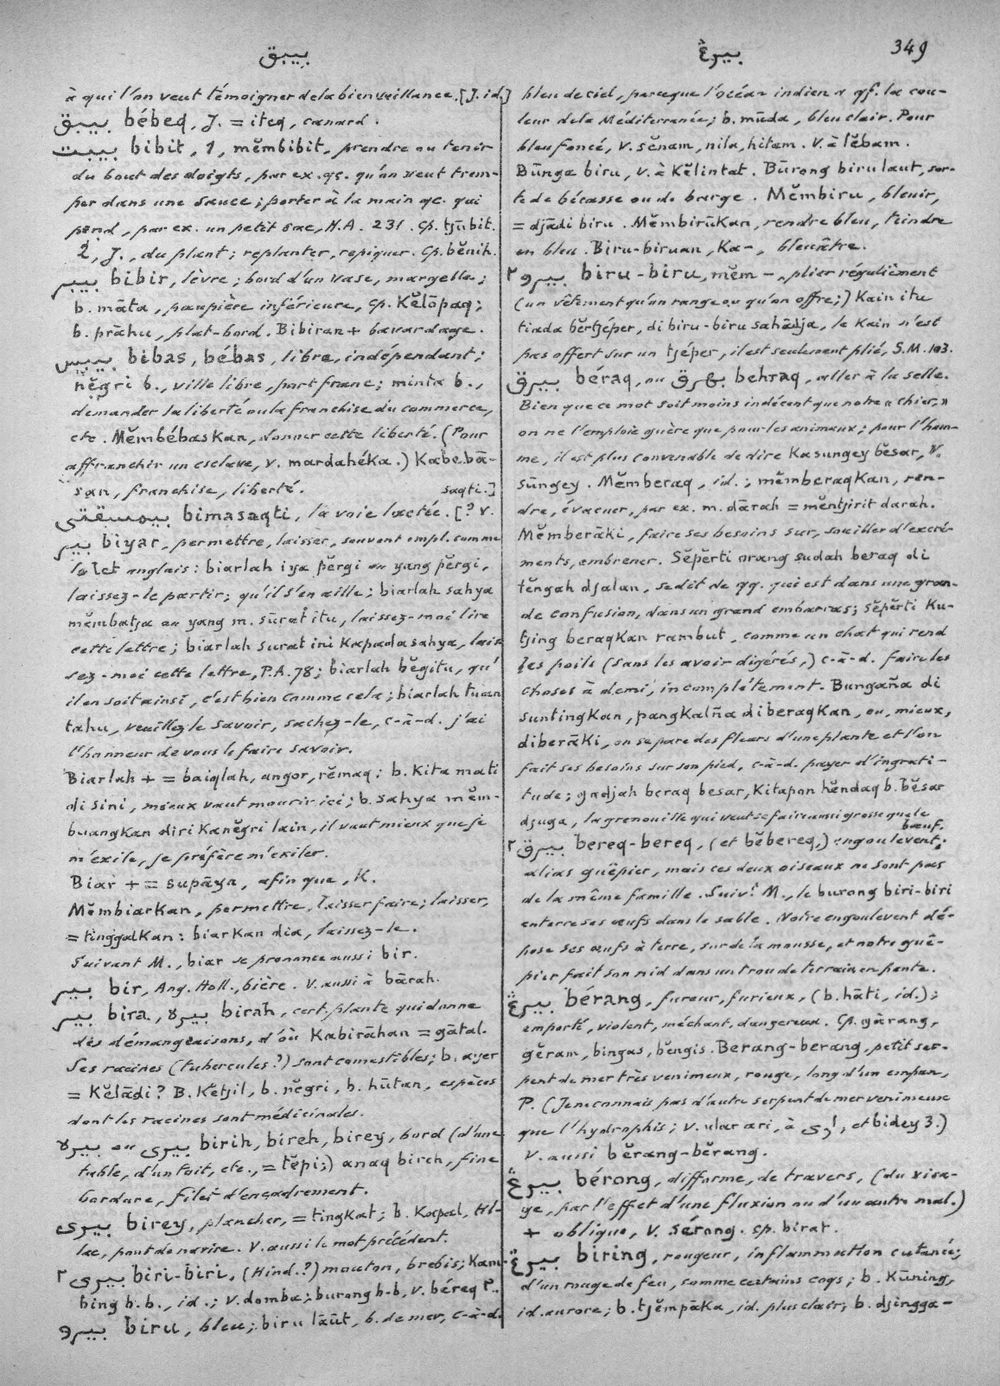 بيبق
بيرڠ
349
à qui l'on veut témoigner de la bienveillance. [J. id.]
بيبق bébeq, J. = iteq, canard.
بيبت bibit, 1, mĕmbibit, prendre ou tenir
du bout des doigts, par ex. qc. qu'on veut trem-
per dans une sauce; porter à la main qc. qui
pend, par ex. un petit sac, H.A. 231. Cp. tjūbit.
2, J., du plant; replanter, repiquer. Cp. bĕnih.
بيبر bibir, lèvre; bord d'un vase, margelle;
b. māta, paupière inférieure, cp. Kĕlōpaq;
b. prāhu, plat-bord. Bibiran + bavardage.
بيبس bibas, bébas, libre, indépendant;
nĕgri b., ville libre, port franc; minta b.,
demander la liberté ou la franchise du commerce,
etc. Mĕmbébaskan, donner cette liberté. (Pour
affranchir un esclave, v. mardahéka.) Kabebā-
san, franchise, liberté. saqti.]
بيمسقتي bimasaqti, la voie lactée. [? v.
بير biyar, permettre, laisser, souvent empl. comme
le let anglais: biarlah iya pĕrgi ou yang pĕrgi,
laissez-le partir; qu'il s'en aille; biarlah sahya
mĕmbatja ou yang m. sūrat itu, laissez-moi lire
cette lettre; biarlah surat ini Kapada sahya, lais-
sez-moi cette lettre, P.A. 78; biarlah bĕgitu, qu'
il en soit ainsi, c'est bien comme cela; biarlah tuan
tahu, veuillez le savoir, sachez-le, c-à-d. j'ai
l'honneur de vous le faire savoir.
Biarlah + = baiqlah, angor, rĕmaq: b. Kita mati
di sini, mieux vaut mourir ici; b. sahya mĕm-
buangkan diri Kanĕgri lain, il vaut mieux que je
m'exile, je préfère m'exiler.
Biar + = supāya, afin que, K.
Mĕmbiarkan, permettre, laisser faire; laisser,
= tinggalkan: biarkan dia, laissez-le.
Suivant M., biar se prononce aussi bir.
بير bir, Ang. Holl., bière. V. aussi à bārah.
بير bira, بيره birah, cert. plante qui donne
des démangeaisons, d'où Kabirāhan = gātal.
Ses racines (tubercules?) sont comestibles; b. ayer
= Kĕlādi? B. Ketjil, b. nĕgri, b. hūtan, espèces
dont les racines sont médicinales.
بيره ou بيري birih, bireh, birey, bord (d'une
table, d'un toit, etc., = tĕpi;) anaq bireh, fine
bordure, filet d'encadrement.
بيري birey, plancher, = tingkat; b. Kapal, til-
lac, pont de navire. V. aussi le mot précédent.
بيري٢ biri-biri, (Hind.?) mouton, brebis; Kam-
bing b.b., id.; v. domba; burong b-b, v. béreq ٢.
بيرو biru, bleu; biru lāūt, b. de mer, c-à-d.
bleu de ciel, parceque l'océan indien a qf. la cou-
leur de la Méditerranée; b. mūda, bleu clair. Pour
bleu foncé, v. sĕnam, nila, hitam. V. à lĕbam.
Būnga biru, v. à Kĕlintat. Būrong biru laut, sor-
te de bécasse ou de barge. Mĕmbiru, bleuir,
= djādi biru. Mĕmbirūkan, rendre bleu, teindre
en bleu. Biru-biruan, Ka-, bleuâtre.
بيرو٢ biru-biru, mĕm-, plier régulièrement
(un vêtement qu'on range ou qu'on offre;) Kain itu
tiada bĕrtjéper, di biru-biru sahādja, le Kain n'est
pas offert sur un tjéper, il est seulement plié, S.M. 103.
بيرق béraq, ou بهرق behraq, aller à la selle.
Bien que ce mot soit moins indécent que notre « chier, »
on ne l'emploie guère que pour les animaux; pour l'hom-
me, il est plus convenable de dire Ka sungey bĕsar, v.
sūngey. Mĕmberaq, id.; mĕmberaqkan, ren-
dre, évacuer, par ex. m. dārah = mĕntjirit darah.
Mĕmberāki, faire ses besoins sur, souiller d'excré-
ments, embrener. Sĕpĕrti orang sudah beraq di
tĕngah djalan, se dit de qq. qui est dans une gran-
de confusion, dans un grand embarras; sĕpĕrti Ku-
tjing beraqkan rambut, comme un chat qui rend
les poils (sans les avoir digérés,) c-à-d. faire les
choses à demi, incomplètement. Bungaña di
suntingkan, pangkalña diberaqkan, ou, mieux,
diberāki, on se pare des fleurs d'une plante et l'on
fait ses besoins sur son pied, c-à-d. payer d'ingrati-
tude; gadjah beraq besar, Kitapon hĕndaq b. bĕsar
djuga, la grenouille qui veut se faire aussi grosse que le
bœuf.
بيرق٢ bereq-bereq, (et bĕbereq,) engoulevent,
alias guêpier, mais ces deux oiseaux ne sont pas
de la même famille. Suivt M., le burong biri-biri
enterre ses œufs dans le sable. Notre engoulevent dé-
pose ses œufs à terre, sur de la mousse, et notre guê-
pier fait son nid dans un trou de terrain en pente.
بيرڠ bérang, fureur, furieux, (b. hāti, id.);
emporté, violent, méchant, dangereux. Cp. gārang,
gĕram, bingas, bĕngis. Berang-berang, petit ser-
pent de mer très venimeux, rouge, long d'un empan,
P. (Je ne connais pas d'autre serpent de mer venimeux
que l'hydrophis; v. ular ari, à اري, et bidey 3.)
V. aussi bĕrang-bĕrang.
بيرڠ bérong, difforme, de travers, (du visa-
ge, par l'effet d'une fluxion ou d'un autre mal.)
+ oblique, v. sérong. cp. birat.
بيرڠ biring, rougeur, inflammation cutanée;
d'un rouge de feu, comme certains coqs; b. Kūning,
id. aurore; b. tjĕmpāka, id. plus clair; b. djingga-